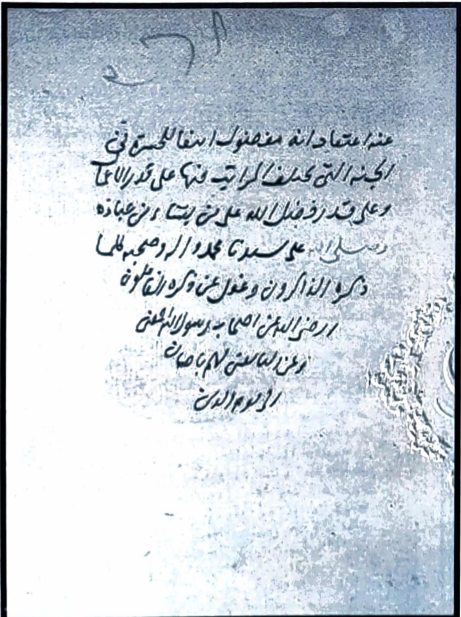 عنه اعتقاد انه مفضول ابتغا للحسرة في
الجنه التي تختلف المراتب فيها على قدر الاعما
وعلى قدر فضل الله على من يشاء من عباده
وصلى الله على سيدنا محمد واله وصحبه كلما
ذكره الذاكرون وغفل عن ذكره الغافلون
ارضى الله عن اصحاب رسول الله اجمعين
وعن التابعين لهم باحسان
الى يوم الدين